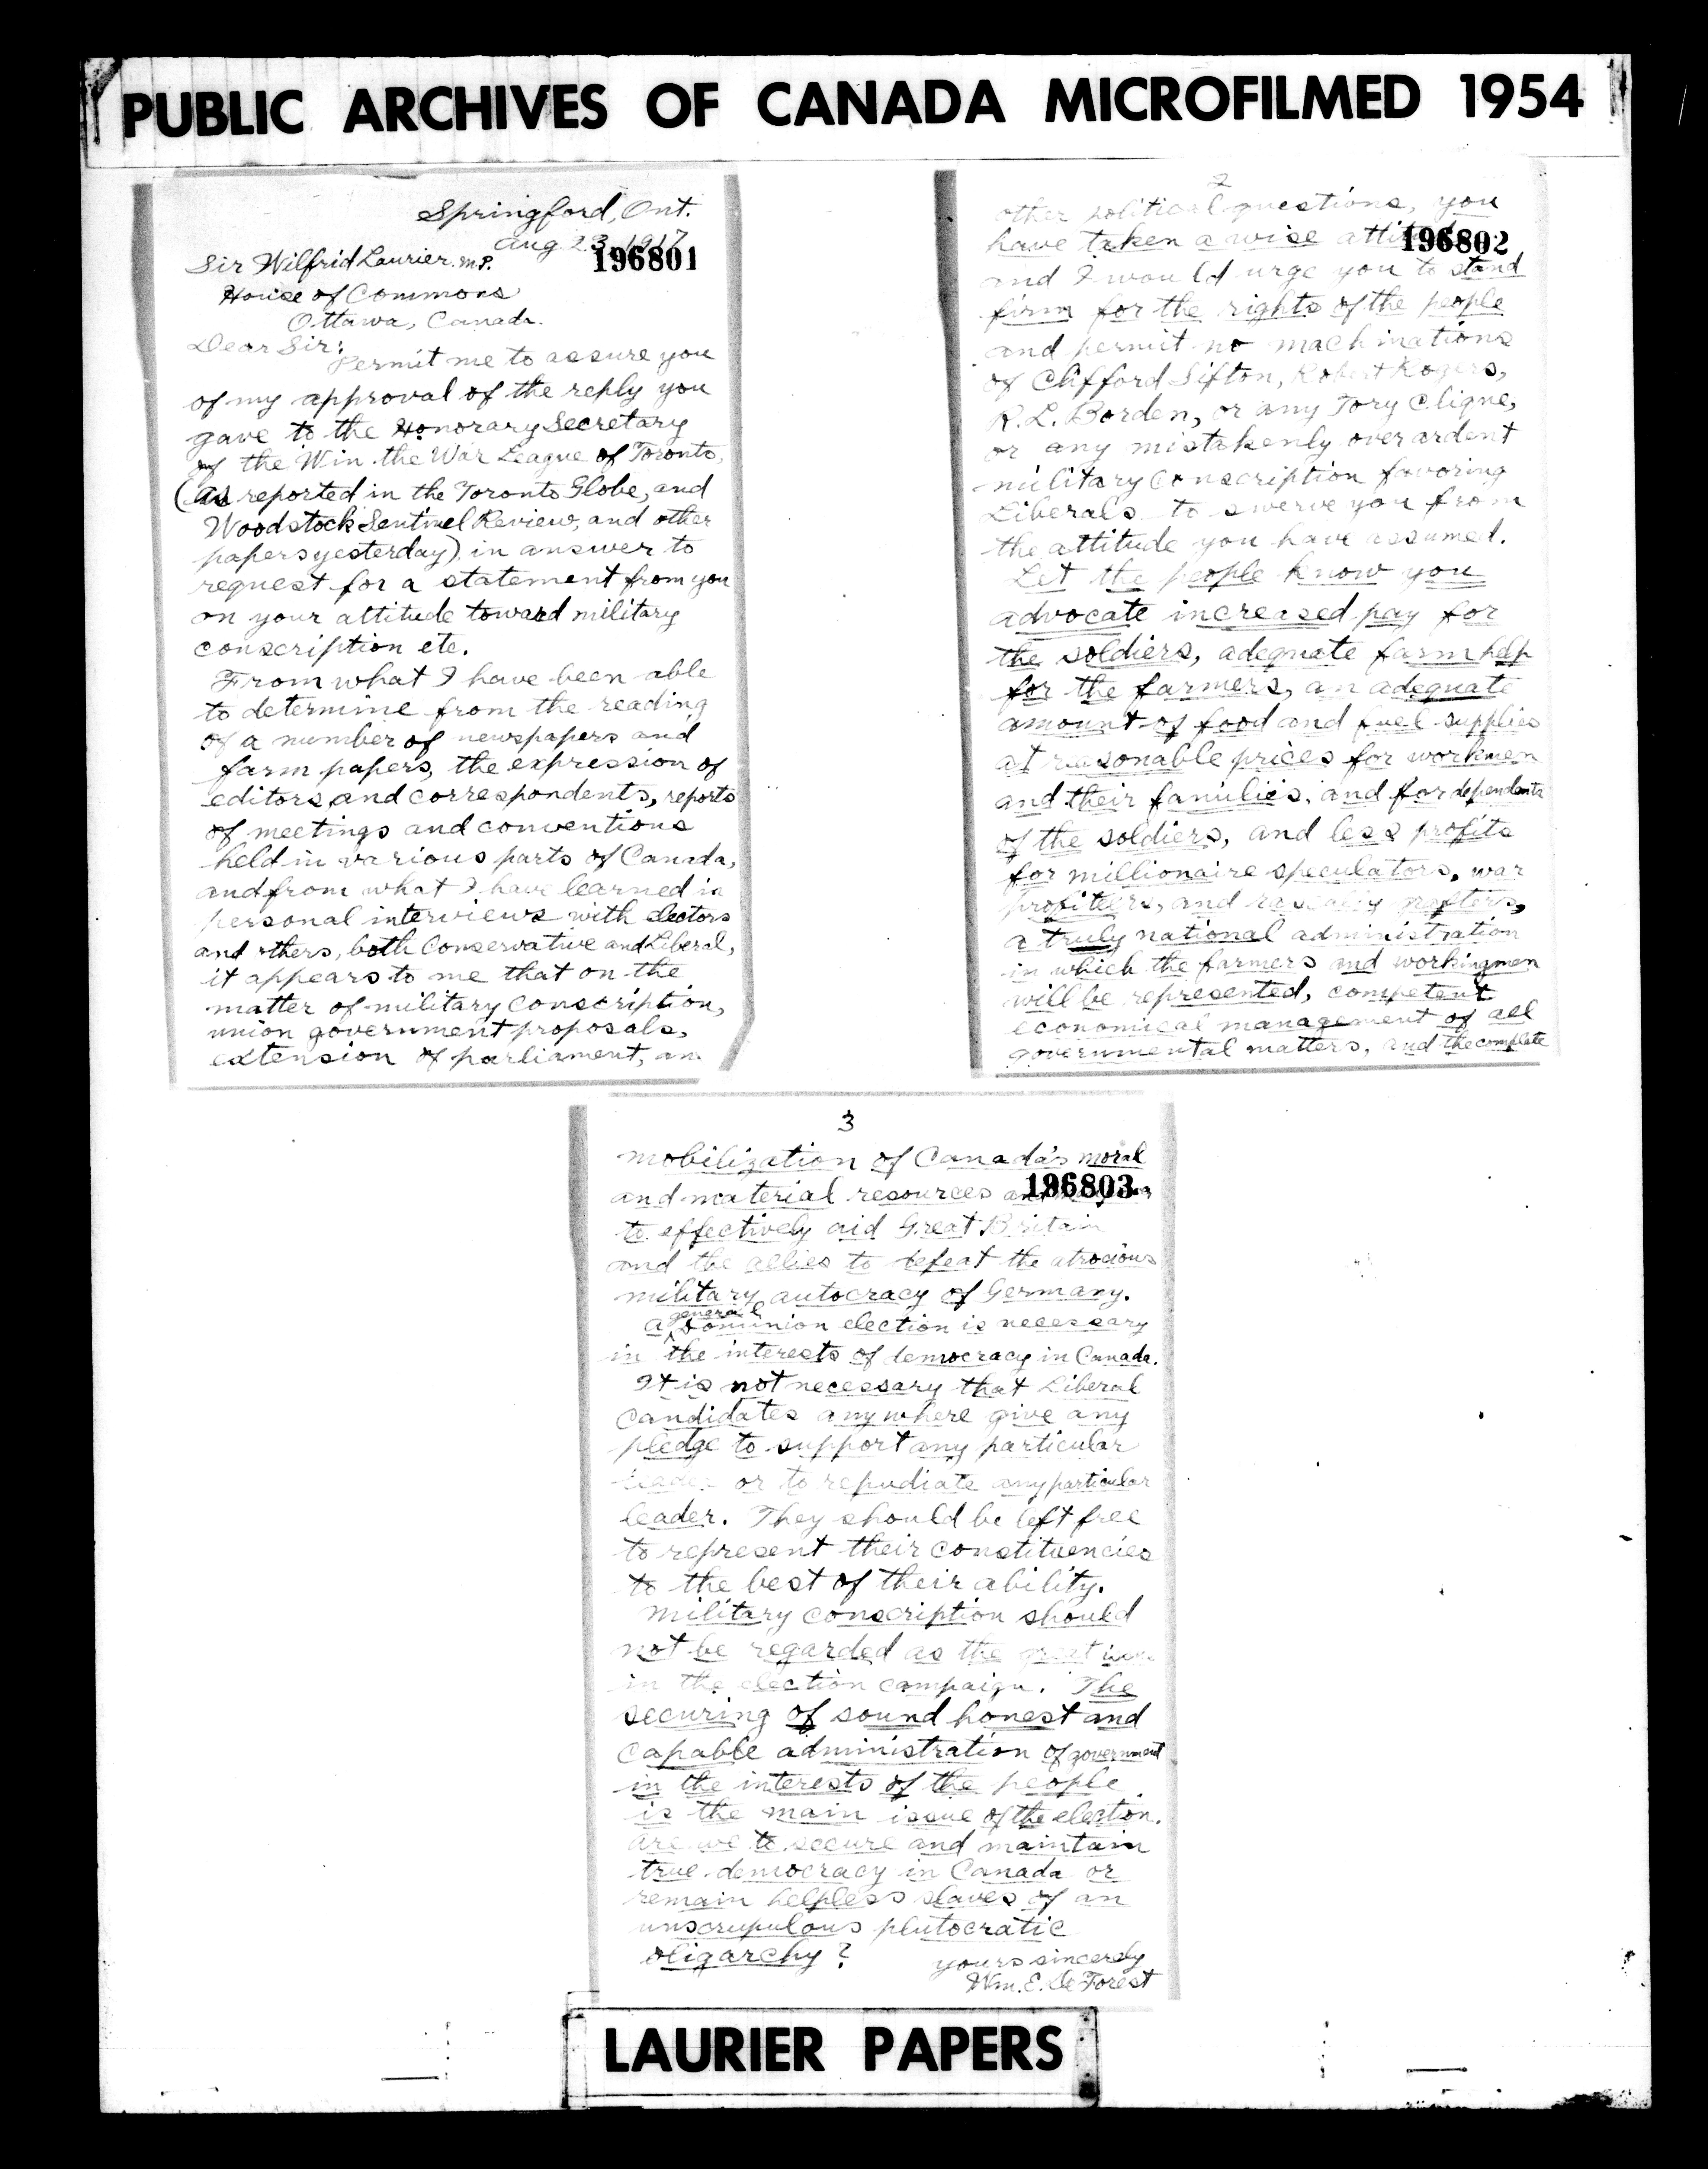 PUBLIC ARCHIVES OF CANADA MICROFILMED 1954
Springford, Ont.
Aug 23, 1917
196801
Sir Wilfrid Laurier M.P.
House of Commons
Ottawa, Canada.
Dear Sir:
Permit me to assure you
of my approval of the reply you
gave to the Honorary Secretary
of the Win the War League of Toronto,
(as reported in the Toronto Globe, and
Woodstock Sentinel Review, and other
papers yesterday) in answer to
request for a statement from you
on your attitude toward military
conscription etc.
From what I have been able
to determine from the reading
of a number of newspapers and
farm papers, the expression of
editors and correspondents, reports
of meetings and conventions
held in various parts of Canada,
and from what I have learned in
personal interviews with electors
and others, both Conservative and Liberal,
it appears to me that on the
matter of military conscription,
union government proposals,
extension of parliament, an
2
other political questions, you
have taken a wise
196802
and I would urge you to stand
firm for the rights of the people
and permit no machinations
of Clifford Sifton, Robert Rogers,
R. L. Borden, or any Tory Clique,
or any mistakenly over ardent
military conscription favoring
Liberals to swerve you from
the attitude you have assumed.
Let the people know you
advocate increased pay for
the soldiers, adequate farm help
for the farmers, an adequate
amount of food and fuel supplies
at reasonable prices for workmen
and their families, and for dependents
of the soldiers, and less profits
for millionaire speculators, war
profiteers, and grafters,
a truly national administration
in which the farmers and workingmen
will be represented, competent
economical management of all
governmental matters, and the complete
3
mobilization of Canada's moral
and material resources
196803
to effectively aid Great Britain
and the allies to defeat the atrocious
military autocracy of Germany.
general
A Dominion election is necessary
in the interests of democracy in Canada.
It is not necessary that Liberal
candidates anywhere give any
pledge to support any particular
leader or to repudiate any particular
leader. They should be left free
to represent their constituencies
to the best of their ability.
Military conscription should
not be regarded as the great
in the election campaign. The
securing of sound honest and
capable administration of government
in the interests of the people
is the main issue of the election.
Are we to secure and maintain
true democracy in Canada or
remain helpless slaves of an
unscrupulous plutocratic
oligarchy?
yours sincerely
Wm. E. De Forest
LAURIER PAPERS